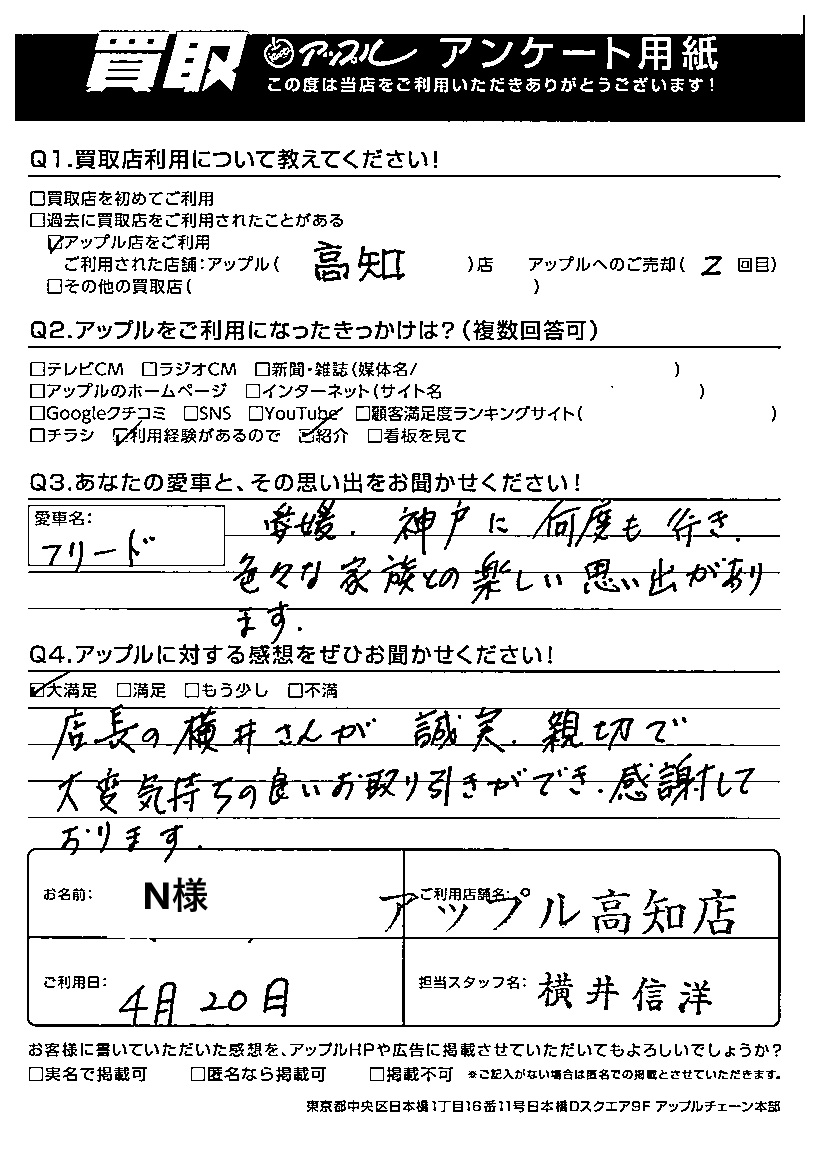 買取 アップル アンケート用紙
この度は当店をご利用いただきありがとうございます!
Q1.買取店利用について教えてください!
□買取店を初めてご利用
□過去に買取店をご利用されたことがある
☑アップル店をご利用
ご利用された店舗:アップル( 高知 )店 アップルへのご売却( 2 回目)
□その他の買取店( )
Q2.アップルをご利用になったきっかけは?(複数回答可)
□テレビCM □ラジオCM □新聞・雑誌(媒体名/ )
□アップルのホームページ □インターネット(サイト名 )
□Googleクチコミ □SNS □YouTube □顧客満足度ランキングサイト( )
□チラシ ☑利用経験があるので ☑紹介 □看板を見て
Q3.あなたの愛車と、その思い出をお聞かせください!
愛車名:
フリード
愛媛、神戸に何度も行き、
色々な家族との楽しい思い出があり
ます。
Q4.アップルに対する感想をぜひお聞かせください!
☑大満足 □満足 □もう少し □不満
店長の横井さんが誠実、親切で
大変気持ちの良いお取り引きができ、感謝して
おります。
お名前: N様 ご利用店舗名: アップル高知店
ご利用日: 4月20日 担当スタッフ名: 横井信洋
お客様に書いていただいた感想を、アップルHPや広告に掲載させていただいてもよろしいでしょうか?
□実名で掲載可 □匿名なら掲載可 □掲載不可 ※ご記入がない場合は匿名での掲載とさせていただきます。
東京都中央区日本橋1丁目16番11号日本橋Dスクエア9F アップルチェーン本部